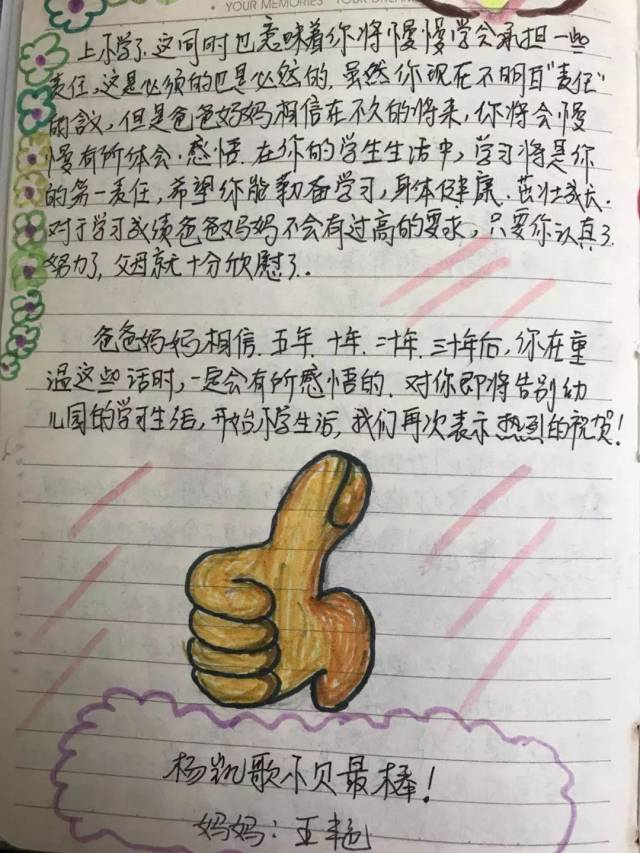 YOUR MEMORIES YOUR DREAM
上小学了.这同时也意味着你将慢慢学会承担一些
责任,这是必须的也是必然的.虽然你现在不明白“责任”
的含议,但是爸爸妈妈相信在不久的将来,你将会慢
慢有所体会.感悟.在你的学生生活中,学习将是你
的第一责任,希望你能勤奋学习,身体健康.茁壮成长.
对于学习成绩爸爸妈妈不会有过高的要求,只要你认真了.
努力了,父母就十分欣慰了.
爸爸妈妈相信.五年.十年.二十年.三十年后,你在重
温这些话时,一定会有所感悟的.对你即将告别幼
儿园的学习生活,开始小学生活,我们再次表示热烈的祝贺!
杨凯歌小贝最棒!
妈妈:王艳